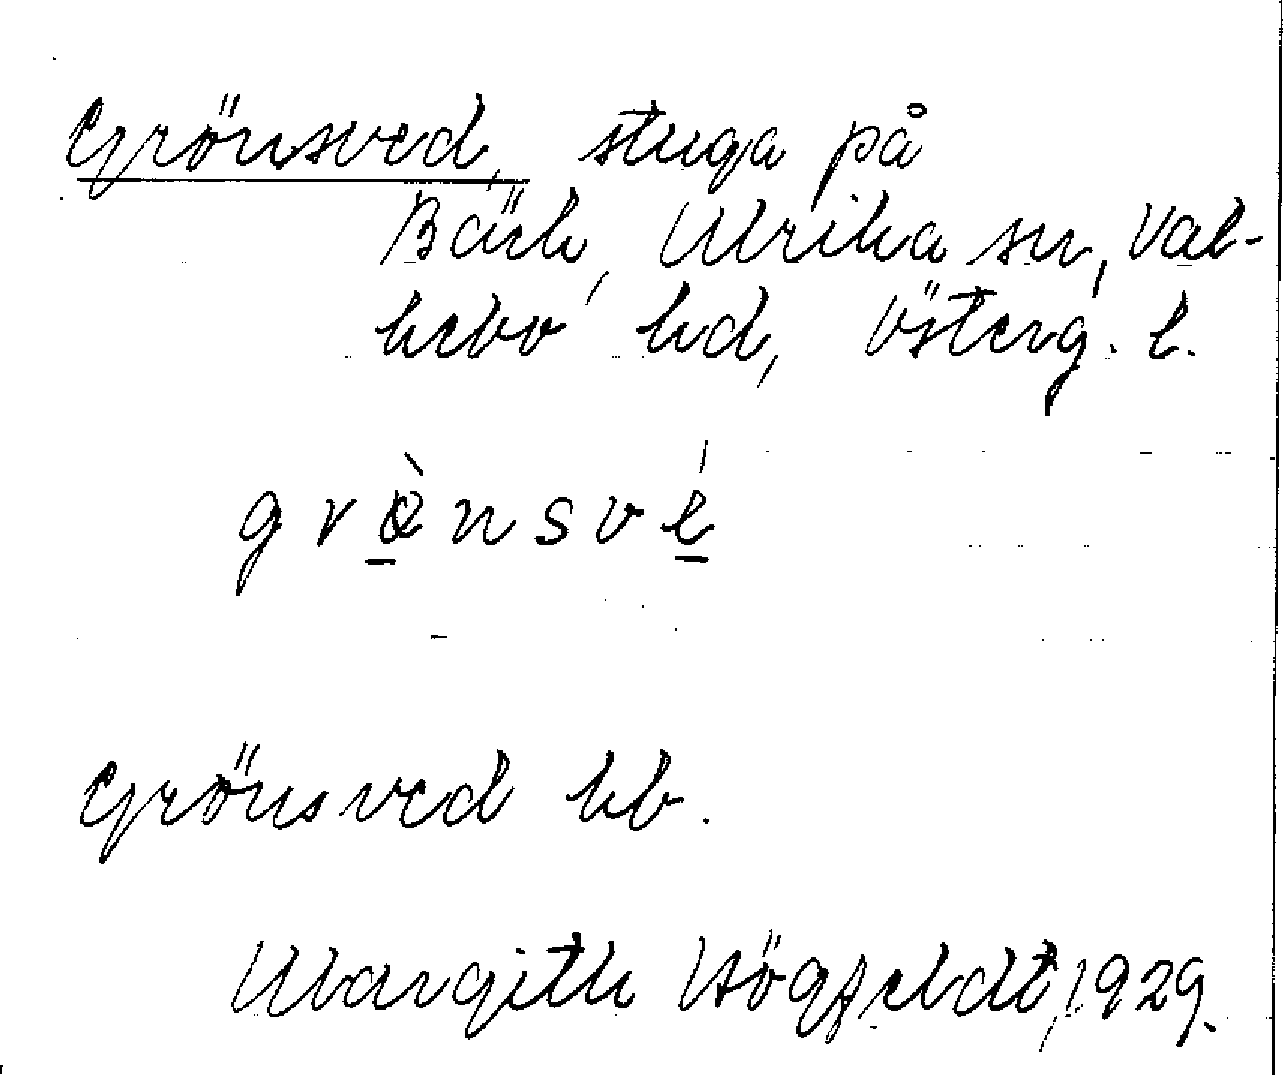 Grönsved, stuga på
Bäck, Ulrika sn, Val-
kebo hd, Österg. l.
grø̀nsvé
Grönsved kb.
Margith Högfeldt, 1929.